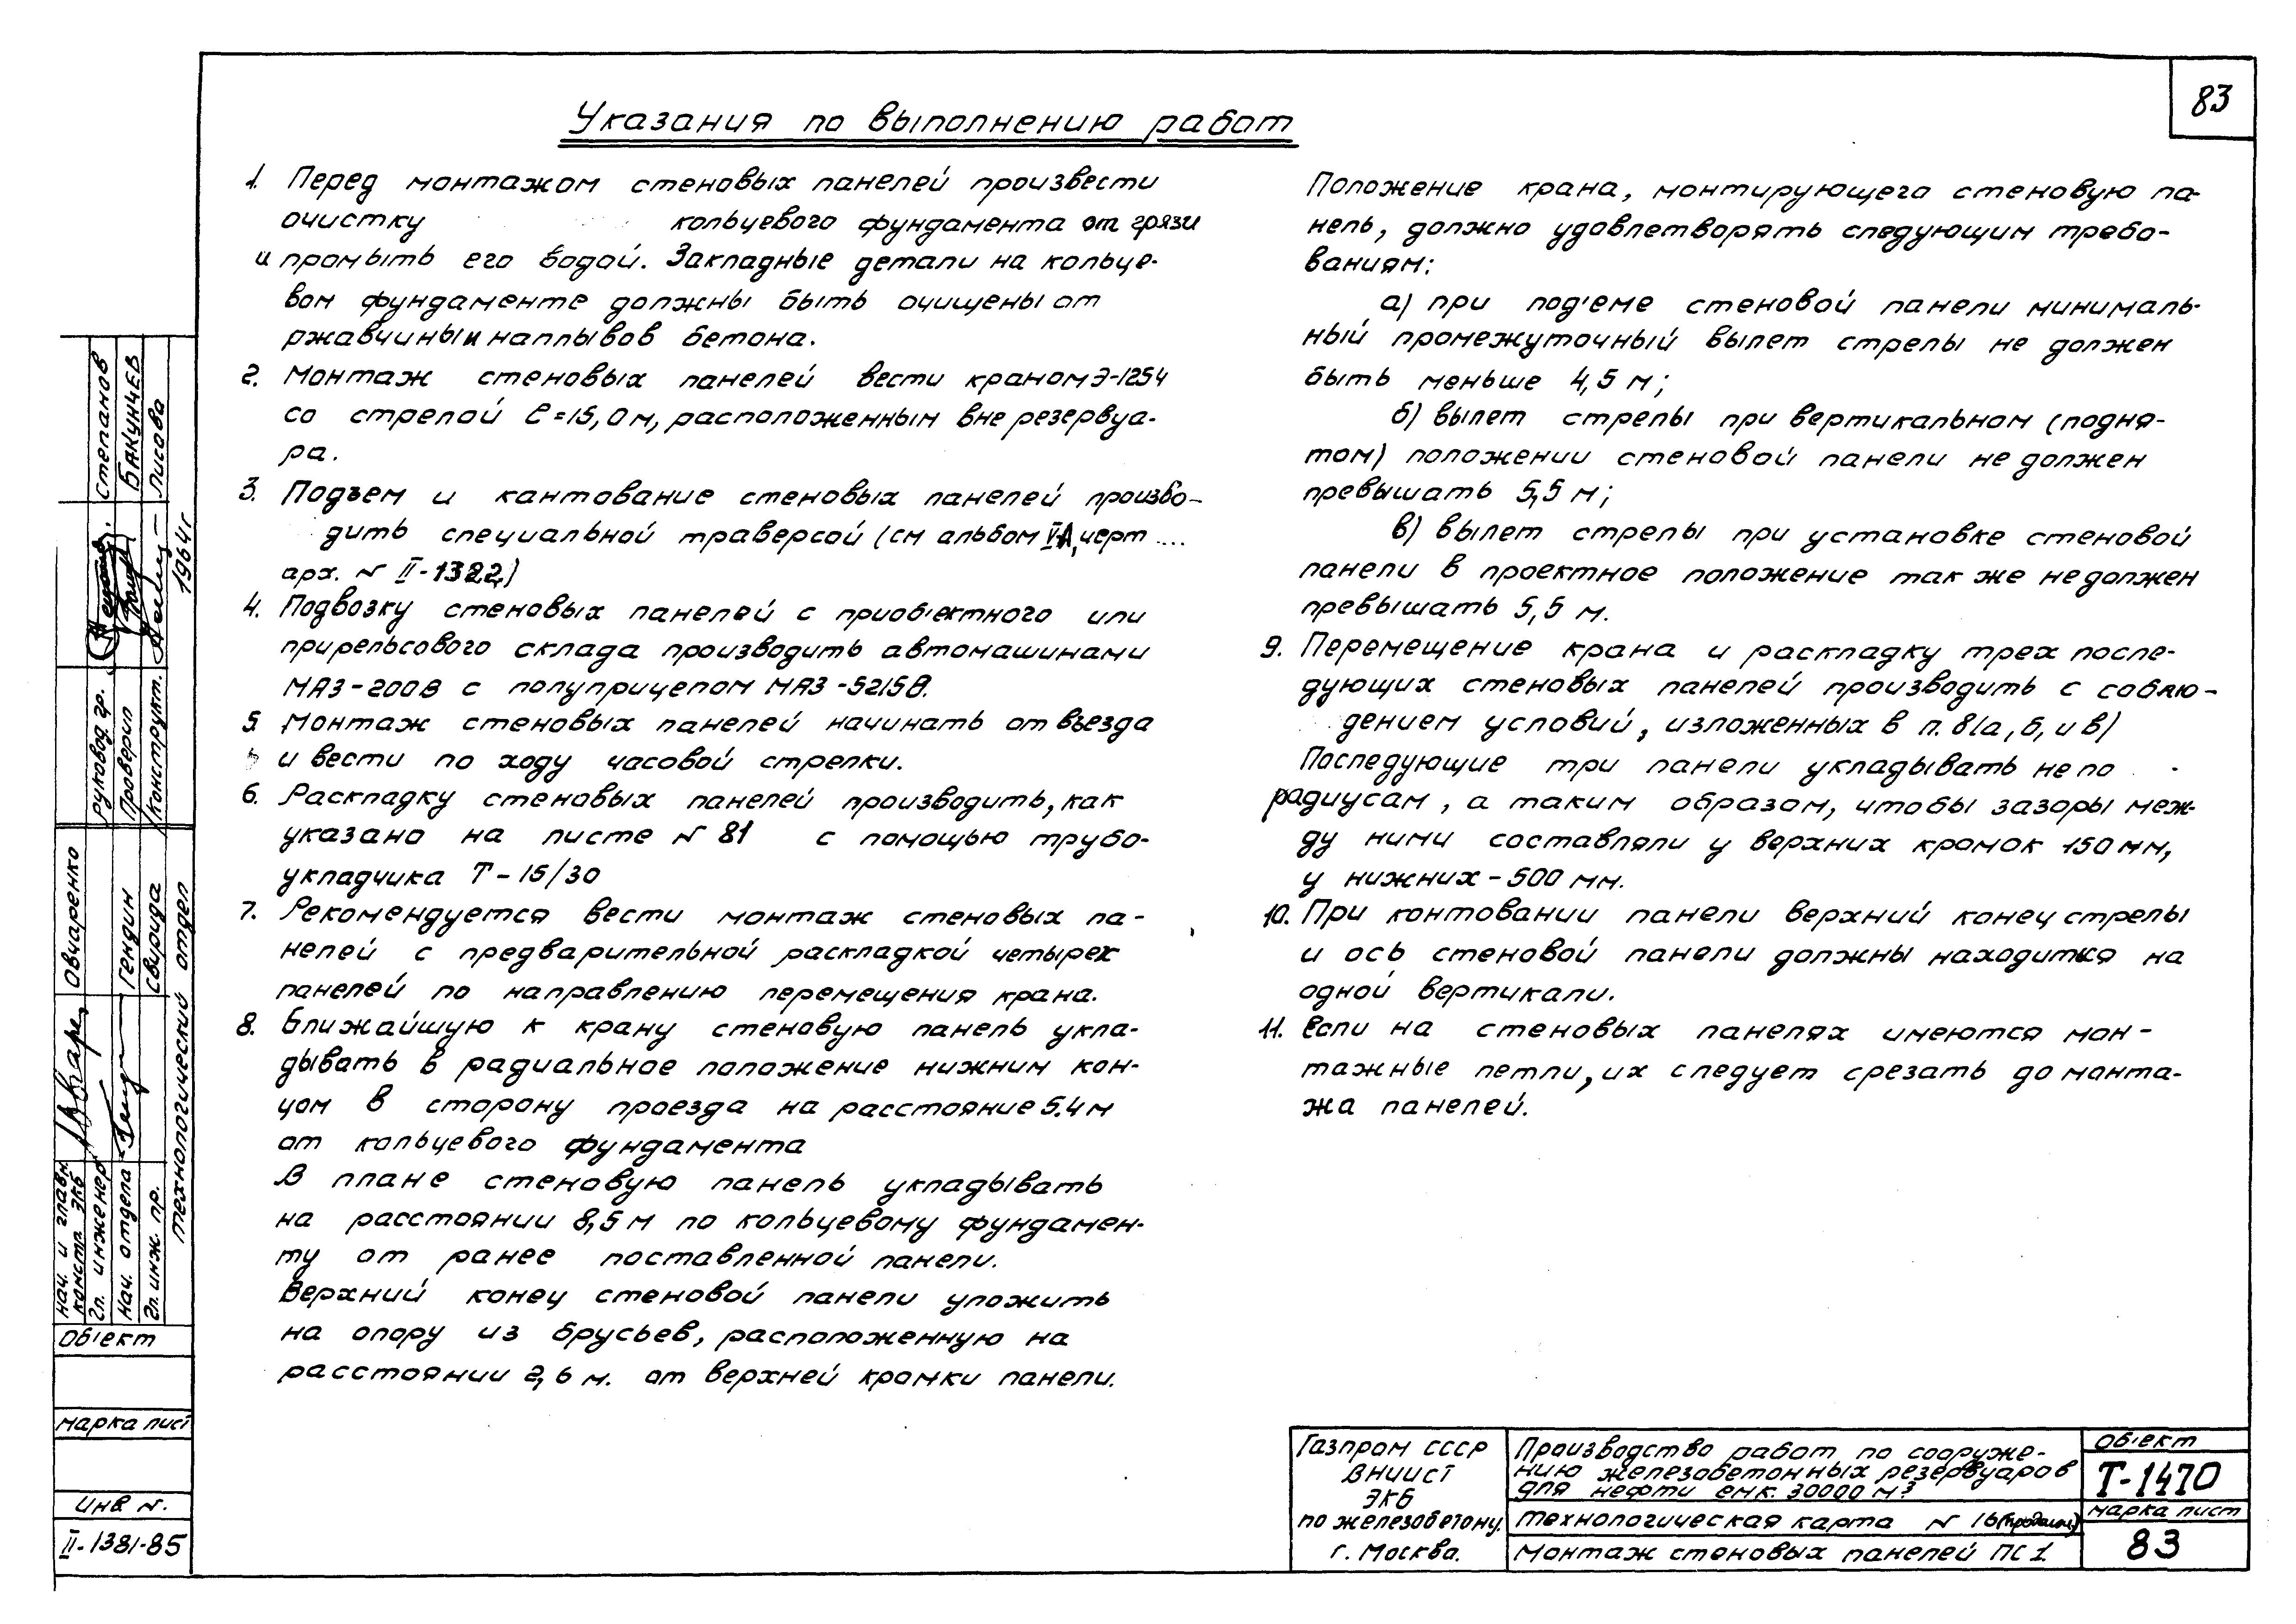 83
Указания по выполнению работ
1. Перед монтажом стеновых панелей произвести
очистку кольцевого фундамента от грязи
и промыть его водой. Закладные детали на кольце-
вом фундаменте должны быть очищены от
ржавчины и наплывов бетона.
2. Монтаж стеновых панелей вести краном Э-1254
со стрелой ℓ=15,0 м, расположенным вне резервуа-
ра.
3. Подъем и кантование стеновых панелей произво-
дить специальной траверсой (см альбом V-А, черт ....
арх. № II-1322)
4. Подвозку стеновых панелей с приоб'ектного или
прирельсового склада производить автомашинами
МАЗ-200В с полуприцепом МАЗ-5215В.
5. Монтаж стеновых панелей начинать от въезда
и вести по ходу часовой стрелки.
6. Раскладку стеновых панелей производить, как
указано на листе № 81 с помощью трубо-
укладчика Т-15/30
7. Рекомендуется вести монтаж стеновых па-
нелей с предварительной раскладкой четырех
панелей по направлению перемещения крана.
8. Ближайшую к крану стеновую панель укла-
дывать в радиальное положение нижним кон-
цом в сторону проезда на расстояние 5.4 м
от кольцевого фундамента
В плане стеновую панель укладывать
на расстоянии 8,5 м по кольцевому фундамен-
ту от ранее поставленной панели.
Верхний конец стеновой панели уложить
на опору из брусьев, расположенную на
расстоянии 2,6 м. от верхней кромки панели.
Положение крана, монтирующего стеновую па-
нель, должно удовлетворять следующим требо-
ваниям:
а) при под'еме стеновой панели минималь-
ный промежуточный вылет стрелы не должен
быть меньше 4,5 м;
б) вылет стрелы при вертикальном (подня-
том) положении стеновой панели не должен
превышать 5,5 м;
в) вылет стрелы при установке стеновой
панели в проектное положение так же не должен
превышать 5,5 м.
9. Перемещение крана и раскладку трех после-
дующих стеновых панелей производить с соблю-
дением условий, изложенных в п. 8(а, б, и в)
Последующие три панели укладывать не по
радиусам, а таким образом, чтобы зазоры меж-
ду ними составляли у верхних кромок 150 мм,
у нижних - 500 мм.
10. При контовании панели верхний конец стрелы
и ось стеновой панели должны находиться на
одной вертикали.
11. Если на стеновых панелях имеются мон-
тажные петли, их следует срезать до монта-
жа панелей.
Газпром СССР
ВНИИСТ
ЭКБ
по железобетону.
г. Москва.
Производство работ по сооруже-
нию железобетонных резервуаров
для нефти емк. 30000 м³
Технологическая карта № 16 (продолж.)
Монтаж стеновых панелей ПС 1
Об'ект
Т-1470
марка лист
83
руковод. гр. Степанов
Проверил Бакунчев
Конструкт. Лисова
1964г
нач. и главн. констр. ЭКБ Овчаренко
гл. инженер
нач. отдела Гендин
гл. инж. пр. Свирида
технологический отдел
Об'ект
марка лист
Инв №.
II-1381-85